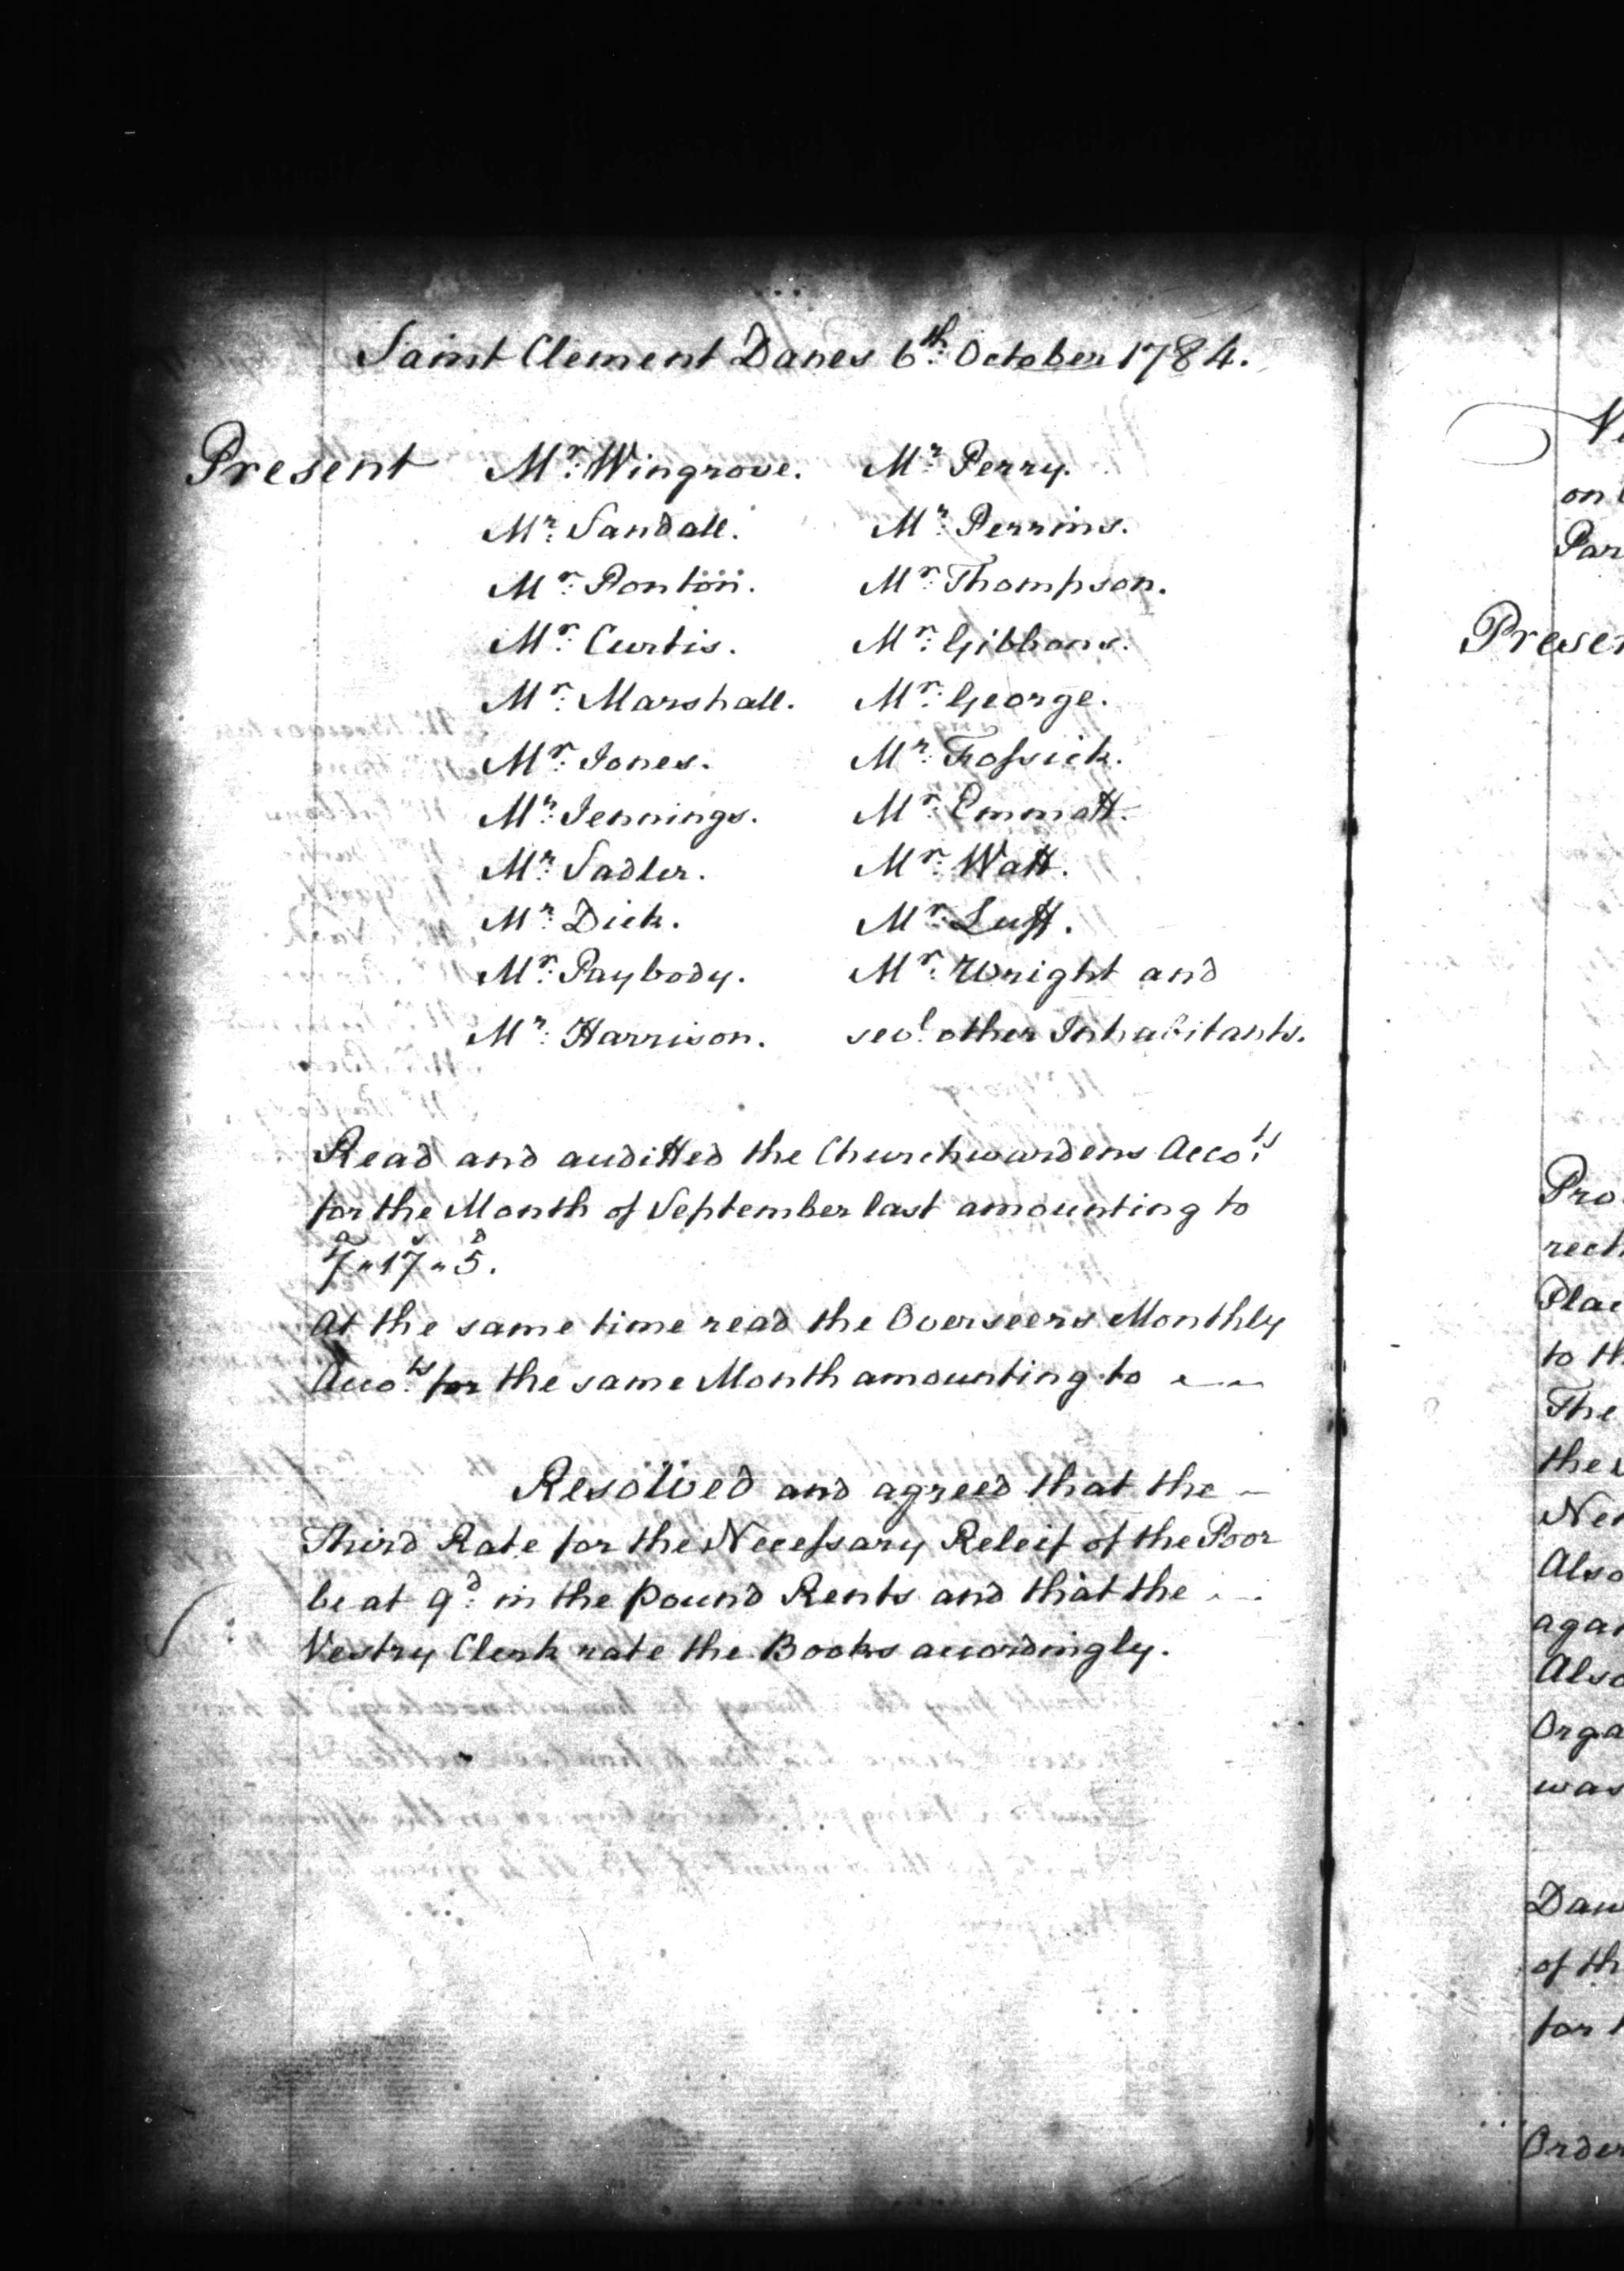 Saint Clement Danes 6th. October 1784.
Present Mr. Wingrove. Mr. Perry.
Mr. Sandall. Mr. Perrins.
Mr. Ponton. Mr. Thompson.
Mr. Curtis. Mr. Gibbons.
Mr. Marshall. Mr. George.
Mr. Jones. Mr. Frossick.
Mr. Jennings. Mr. Emmott.
Mr. Sadler. Mr. Watt.
Mr. Dick. Mr. Luff.
Mr. Paybody. Mr. Wright and
Mr. Harrison. sevl. other Inhabitants.
Read and auditted the Churchwardens Accots.
for the Month of September last amounting to
7 " 17 " 5.
At the same time read the Overseers Monthly
Accots. for the same Month amounting to
Resolved and agreed that the
Third Rate for the Necessary Releif of the Poor
be at 9d. in the pound Rents and that the
Vestry Clerk rate the Books accordingly.
on
Par
Presen
Pro
rech
Plac
to th
The
the
Also
again
Also
Orga
was
Daw
of th
for
Order